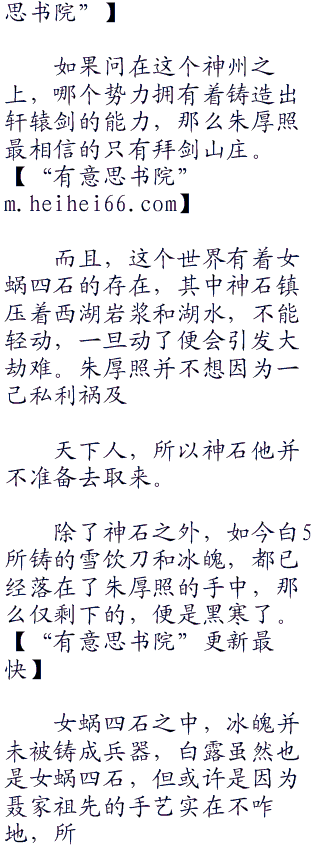 思书院”】
如果问在这个神州之
上，哪个势力拥有着铸造出
轩辕剑的能力，那么朱厚照
最相信的只有拜剑山庄。
【“有意思书院”
m.heihei66.com】
而且，这个世界有着女
娲四石的存在，其中神石镇
压着西湖岩浆和湖水，不能
轻动，一旦动了便会引发大
劫难。朱厚照并不想因为一
己私利祸及
天下人，所以神石他并
不准备去取来。
除了神石之外，如今白5
所铸的雪饮刀和冰魄，都已
经落在了朱厚照的手中，那
么仅剩下的，便是黑寒了。
【“有意思书院”更新最
快】
女娲四石之中，冰魄并
未被铸成兵器，白露虽然也
是女娲四石，但或许是因为
聂家祖先的手艺实在不咋
地，所